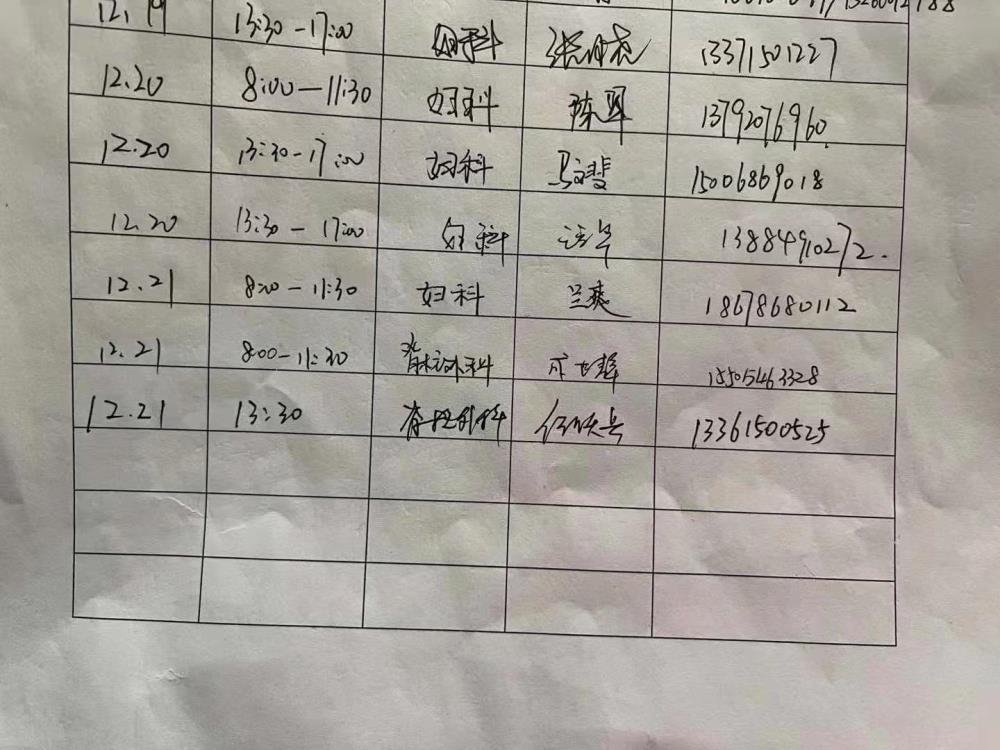 12.19 13:30-17:00 妇科 13371501227
12.20 8:00-11:30 妇科 陈 13792076960
12.20 13:30-17:00 妇科 马文斐 15006869018
12.20 13:30-17:00 妇科 13884910272.
12.21 8:00-11:30 妇科 兰爽 18678680112
12.21 8:00-11:30 脊柱外科 15505463328
12.21 13:30 脊柱外科 13361500525